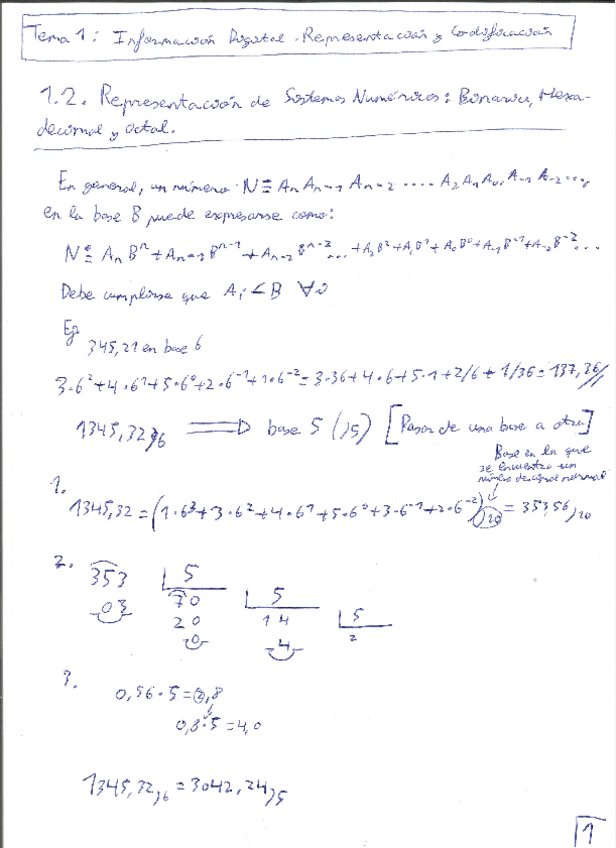 Tema 1: Información Digital. Representación y Codificación
1.2. Representación de Sistemas Numéricos: Binario, Hexa-
decimal y Octal.
En general, un número N ≡ An An-1 An-2 .... A2 A1 A0, A-1 A-2 ...,
en la base B puede expresarse como:
N ≡ An Bⁿ + An-1 Bⁿ⁻¹ + An-2 Bⁿ⁻² ... + A2 B² + A1 B¹ + A0 B⁰ + A-1 B⁻¹ + A-2 B⁻² ...
Debe cumplirse que Ai < B ∀i
Ej:
345,21 en base 6
3·6² + 4·6¹ + 5·6⁰ + 2·6⁻¹ + 1·6⁻² = 3·36 + 4·6 + 5·1 + 2/6 + 1/36 = 137,36//
1345,32)6 ⟹ base 5 ( )5) [Pasar de una base a otra]
Base en la que
se encuentra un
número decimal normal
1.
1345,32 = (1·6³ + 3·6² + 4·6¹ + 5·6⁰ + 3·6⁻¹ + 2·6⁻²))10 = 353'56)10
2.
353 5
03 70 5
20 14 5
0 4 2
3.
0,56·5 = 2,8
0,8·5 = 4,0
1345,32)6 = 3042,24)5
1